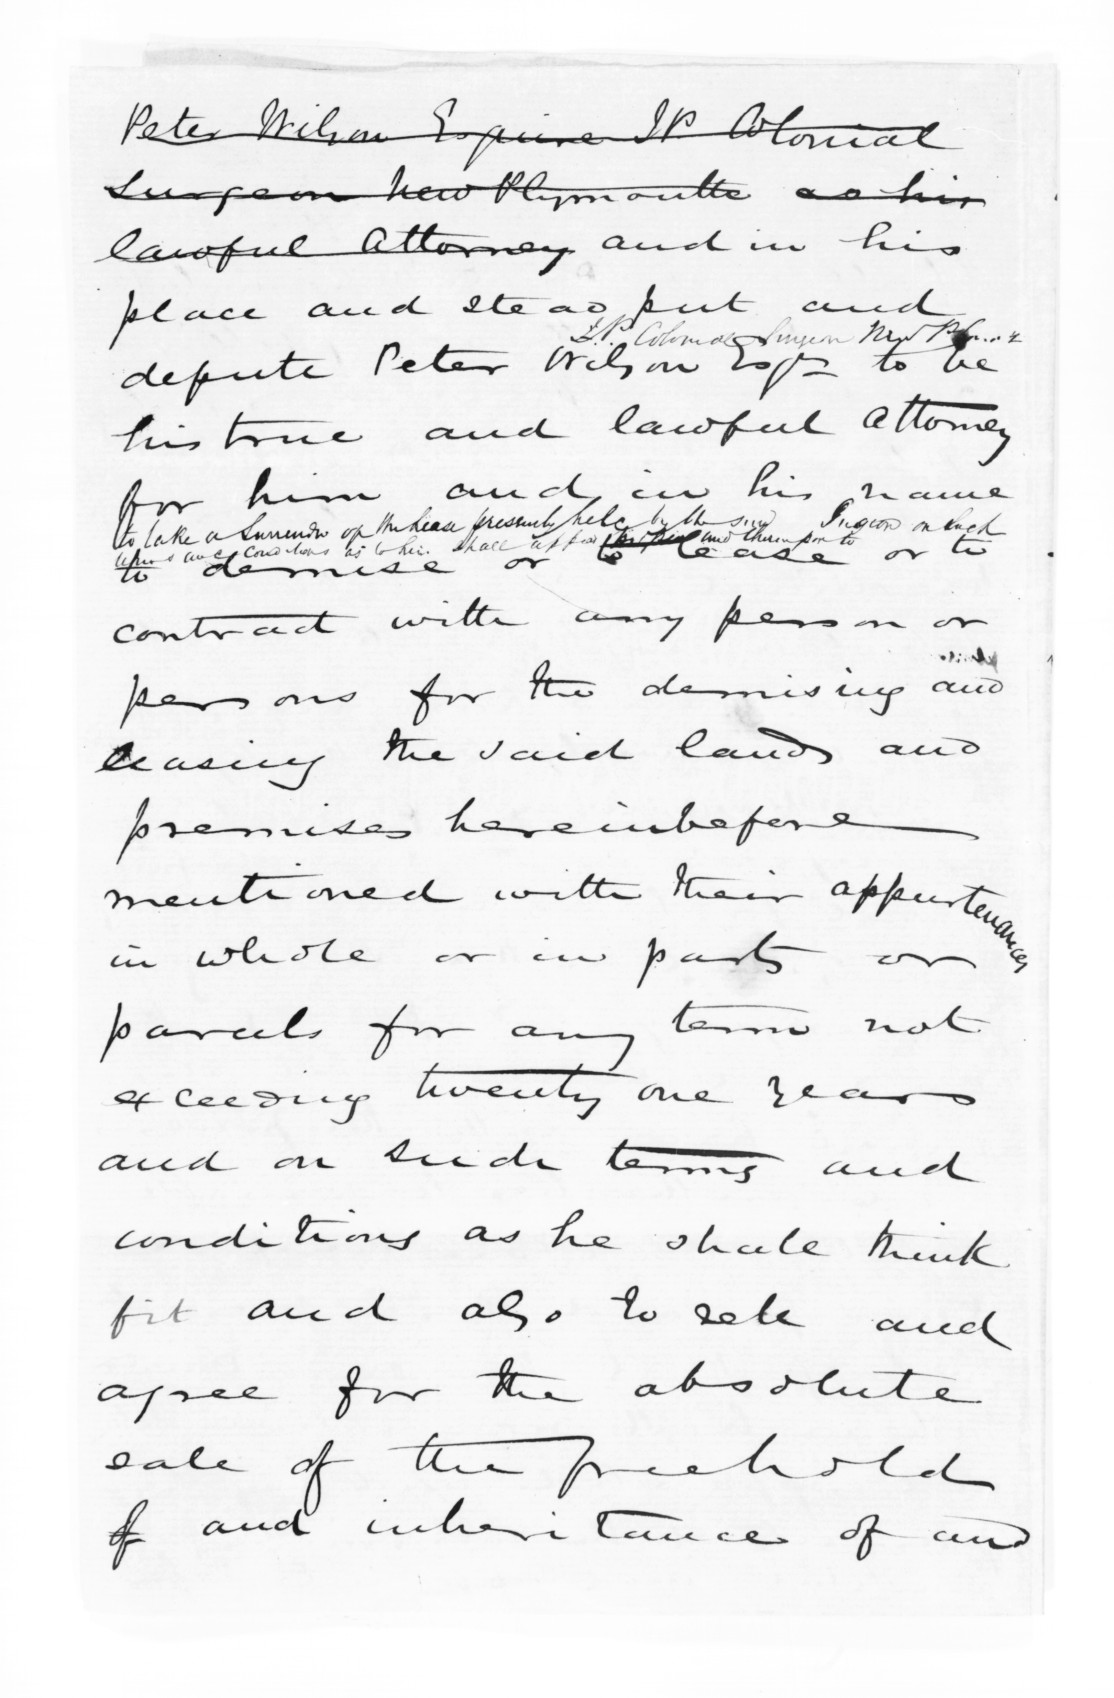 Peter Wilson Esquire JP Colonial
Surgeon New Plymouth as his
lawful Attorney and in his
place and stead put and
J.P. Colonial Surgeon New
depute Peter Wilson Esqre to be
his true and lawful Attorney
for him and in his name
to take a Surrender of the lease presently held by the said on such
terms and conditions as to him shall and thereupon to
to demise or to lease or to
contract with any person or
persons for the demising and
leasing the said lands and
premises hereinbefore
mentioned with their appurtenances
in whole or in parts or
parcels for any term not
exceeding twenty one years
and on such terms and
conditions as he shall think
fit and also to sell and
agree for the absolute
sale of the freehold
of and inheritance of and